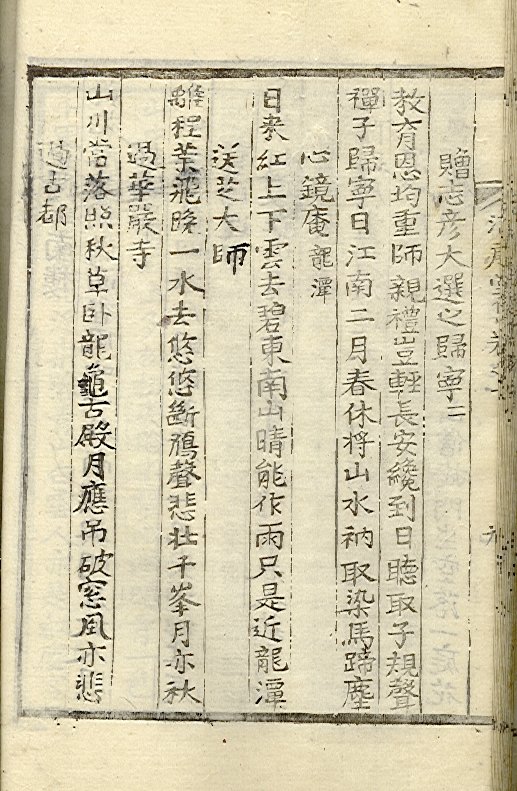 贈志彦大選之歸寧二
教育恩均重師親禮豈輕長安纔到日聽取子規聲
禪子歸寧日江南二月春休将山水衲取染馬蹄塵
心鏡庵龍潭
日来紅上下雲去碧東南山晴能作雨只是近龍潭
送芝大師
離程葉飛晚一水去悠悠斷鴈聲悲壮千峯月亦秋
過華嚴寺
山川當落照秋草卧龍龜古殿月應吊破窓風亦悲
過古都